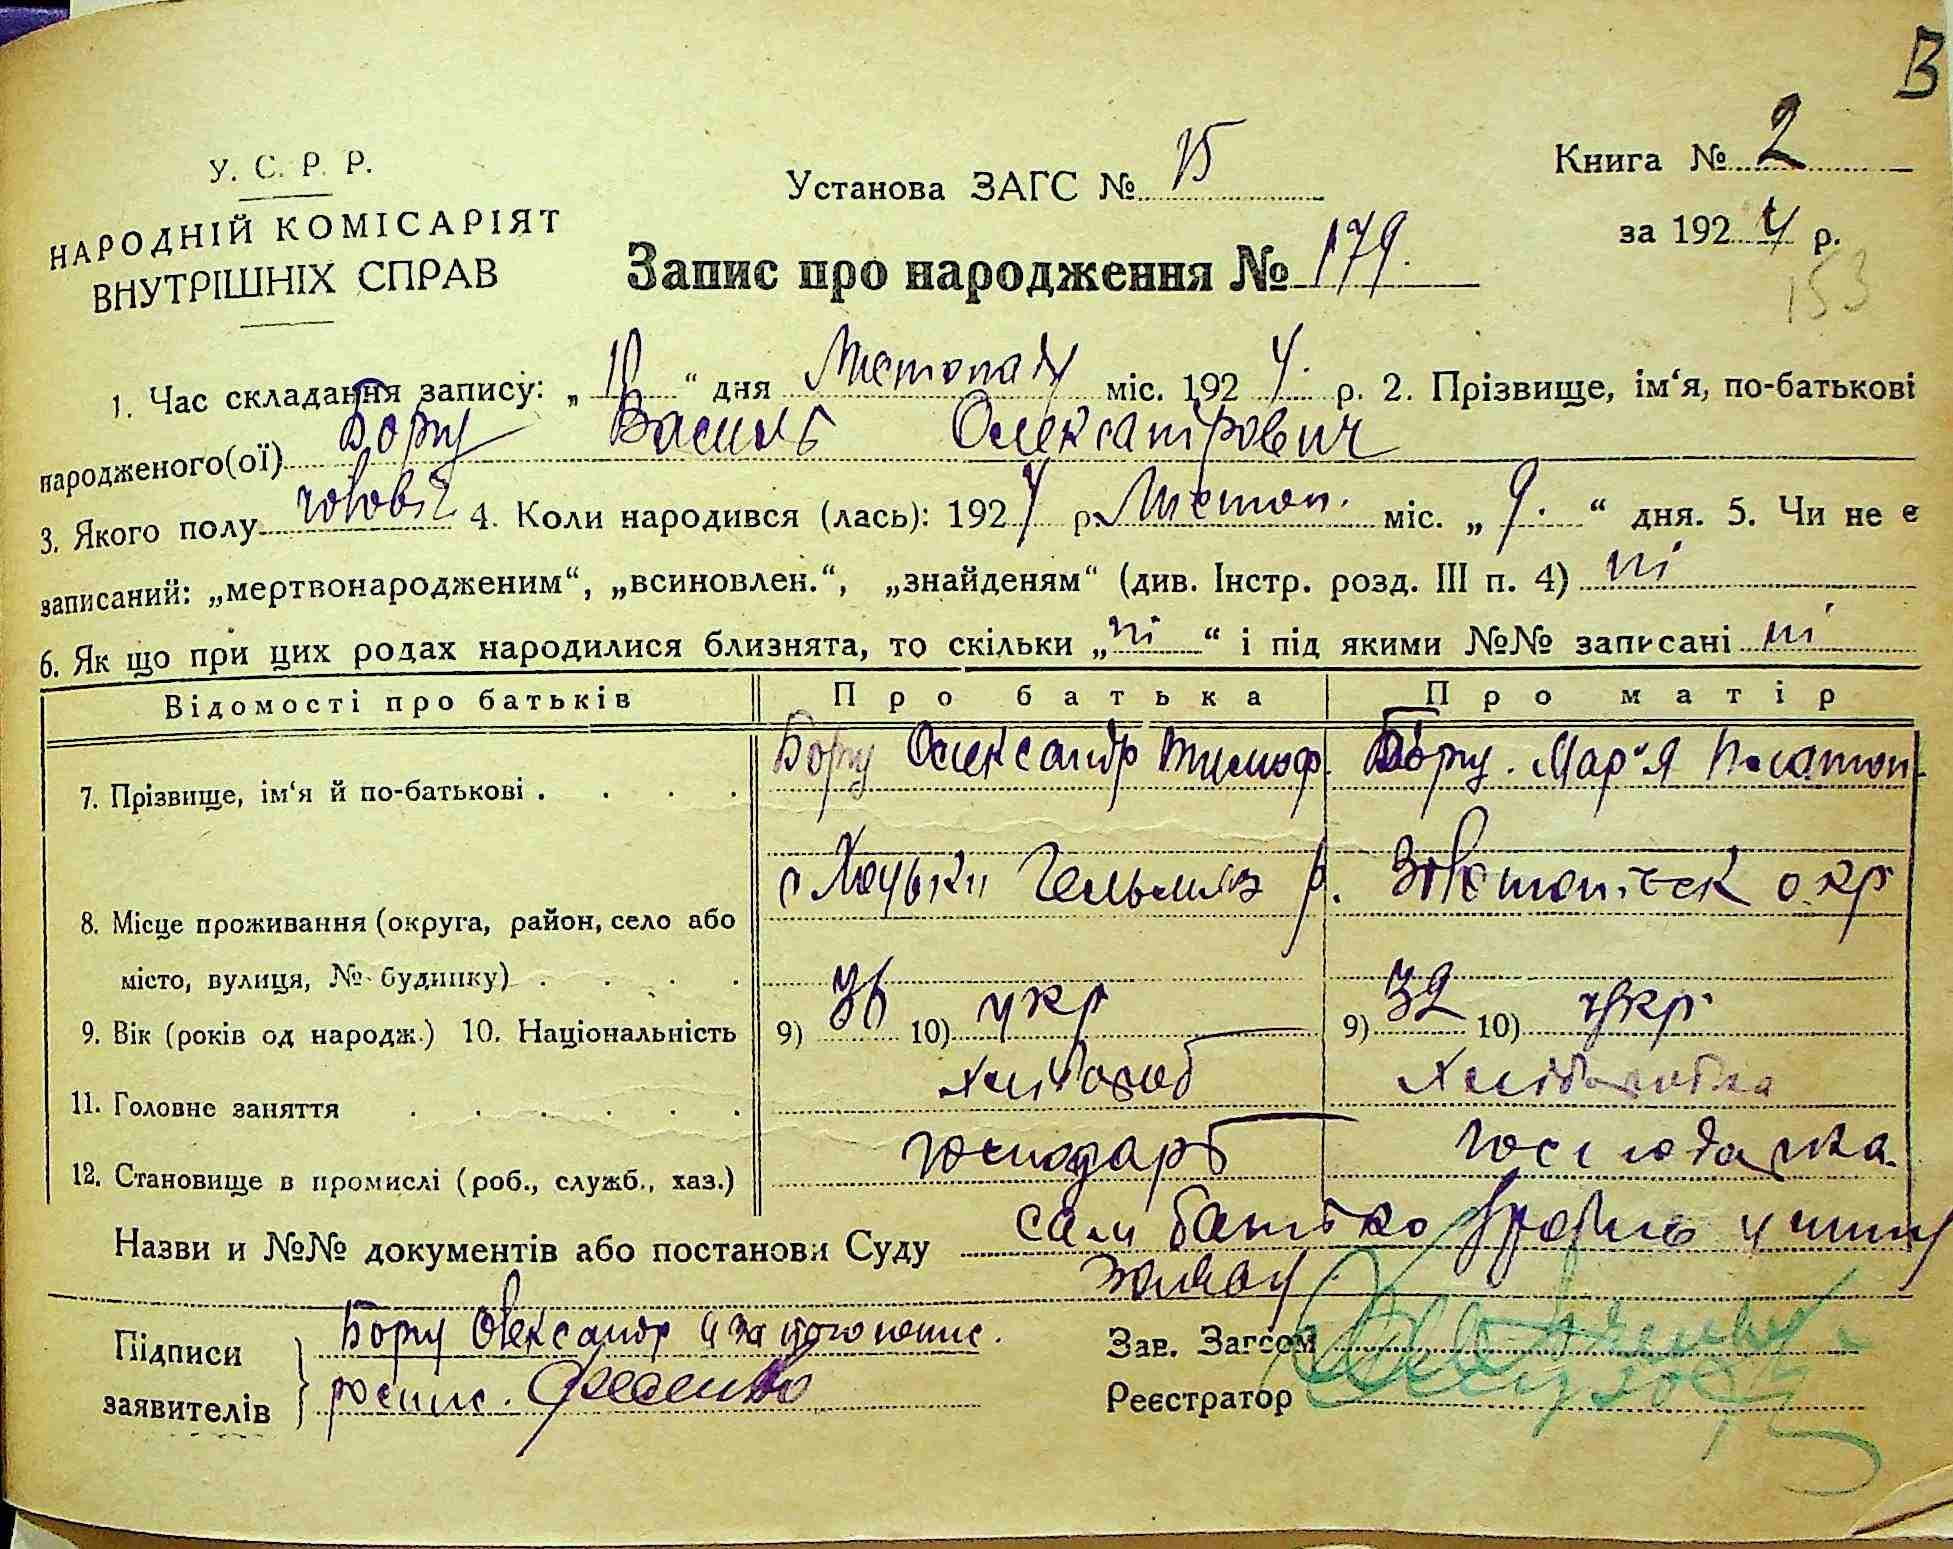 В
У. С. Р. Р.
НАРОДНІЙ КОМІСАРІЯТ
ВНУТРІШНІХ СПРАВ
Установа ЗАГС № 15
Книга № 2
за 1924 р.
153
Запис про народження № 179.
1. Час складання запису: „ “ дня Листопаду міс. 1924. р. 2. Прізвище, ім‘я, по-батькові
народженого(ої) Бору Василь Олександрович
3. Якого полу чоловіч 4. Коли народився (лась): 1924 р. Листоп. міс. „9.“ дня. 5. Чи не є
записаний: „мертвонародженим“, „всиновлен.“, „знайденям“ (див. Інстр. розд. III п. 4) ні
6. Як що при цих родах народилися близнята, то скільки „ні“ і під якими №№ записані ні
Відомості про батьків Про батька Про матір
7. Прізвище, ім‘я й по-батькові . . . . Бору Олександр Тимоф. Бору. Мар‘я Платон.
8. Місце проживання (округа, район, село або місто, вулиця, № будинку) . . . . с Хоцьки Гельмяз р. Золотоніськ окр
9. Вік (років од народж.) 10. Національність 9) 36 10) укр 9) 32 10) укр
11. Головне заняття . . . . . . хлібороб хліборобка
12. Становище в промислі (роб., служб., хаз.) господарь господарка.
Назви и №№ документів або постанови Суду сам батько зробив устну
заяву
Підписи заявителів Бору Олександр а за його непис.
роспис.
Зав. Загсом
Реєстратор